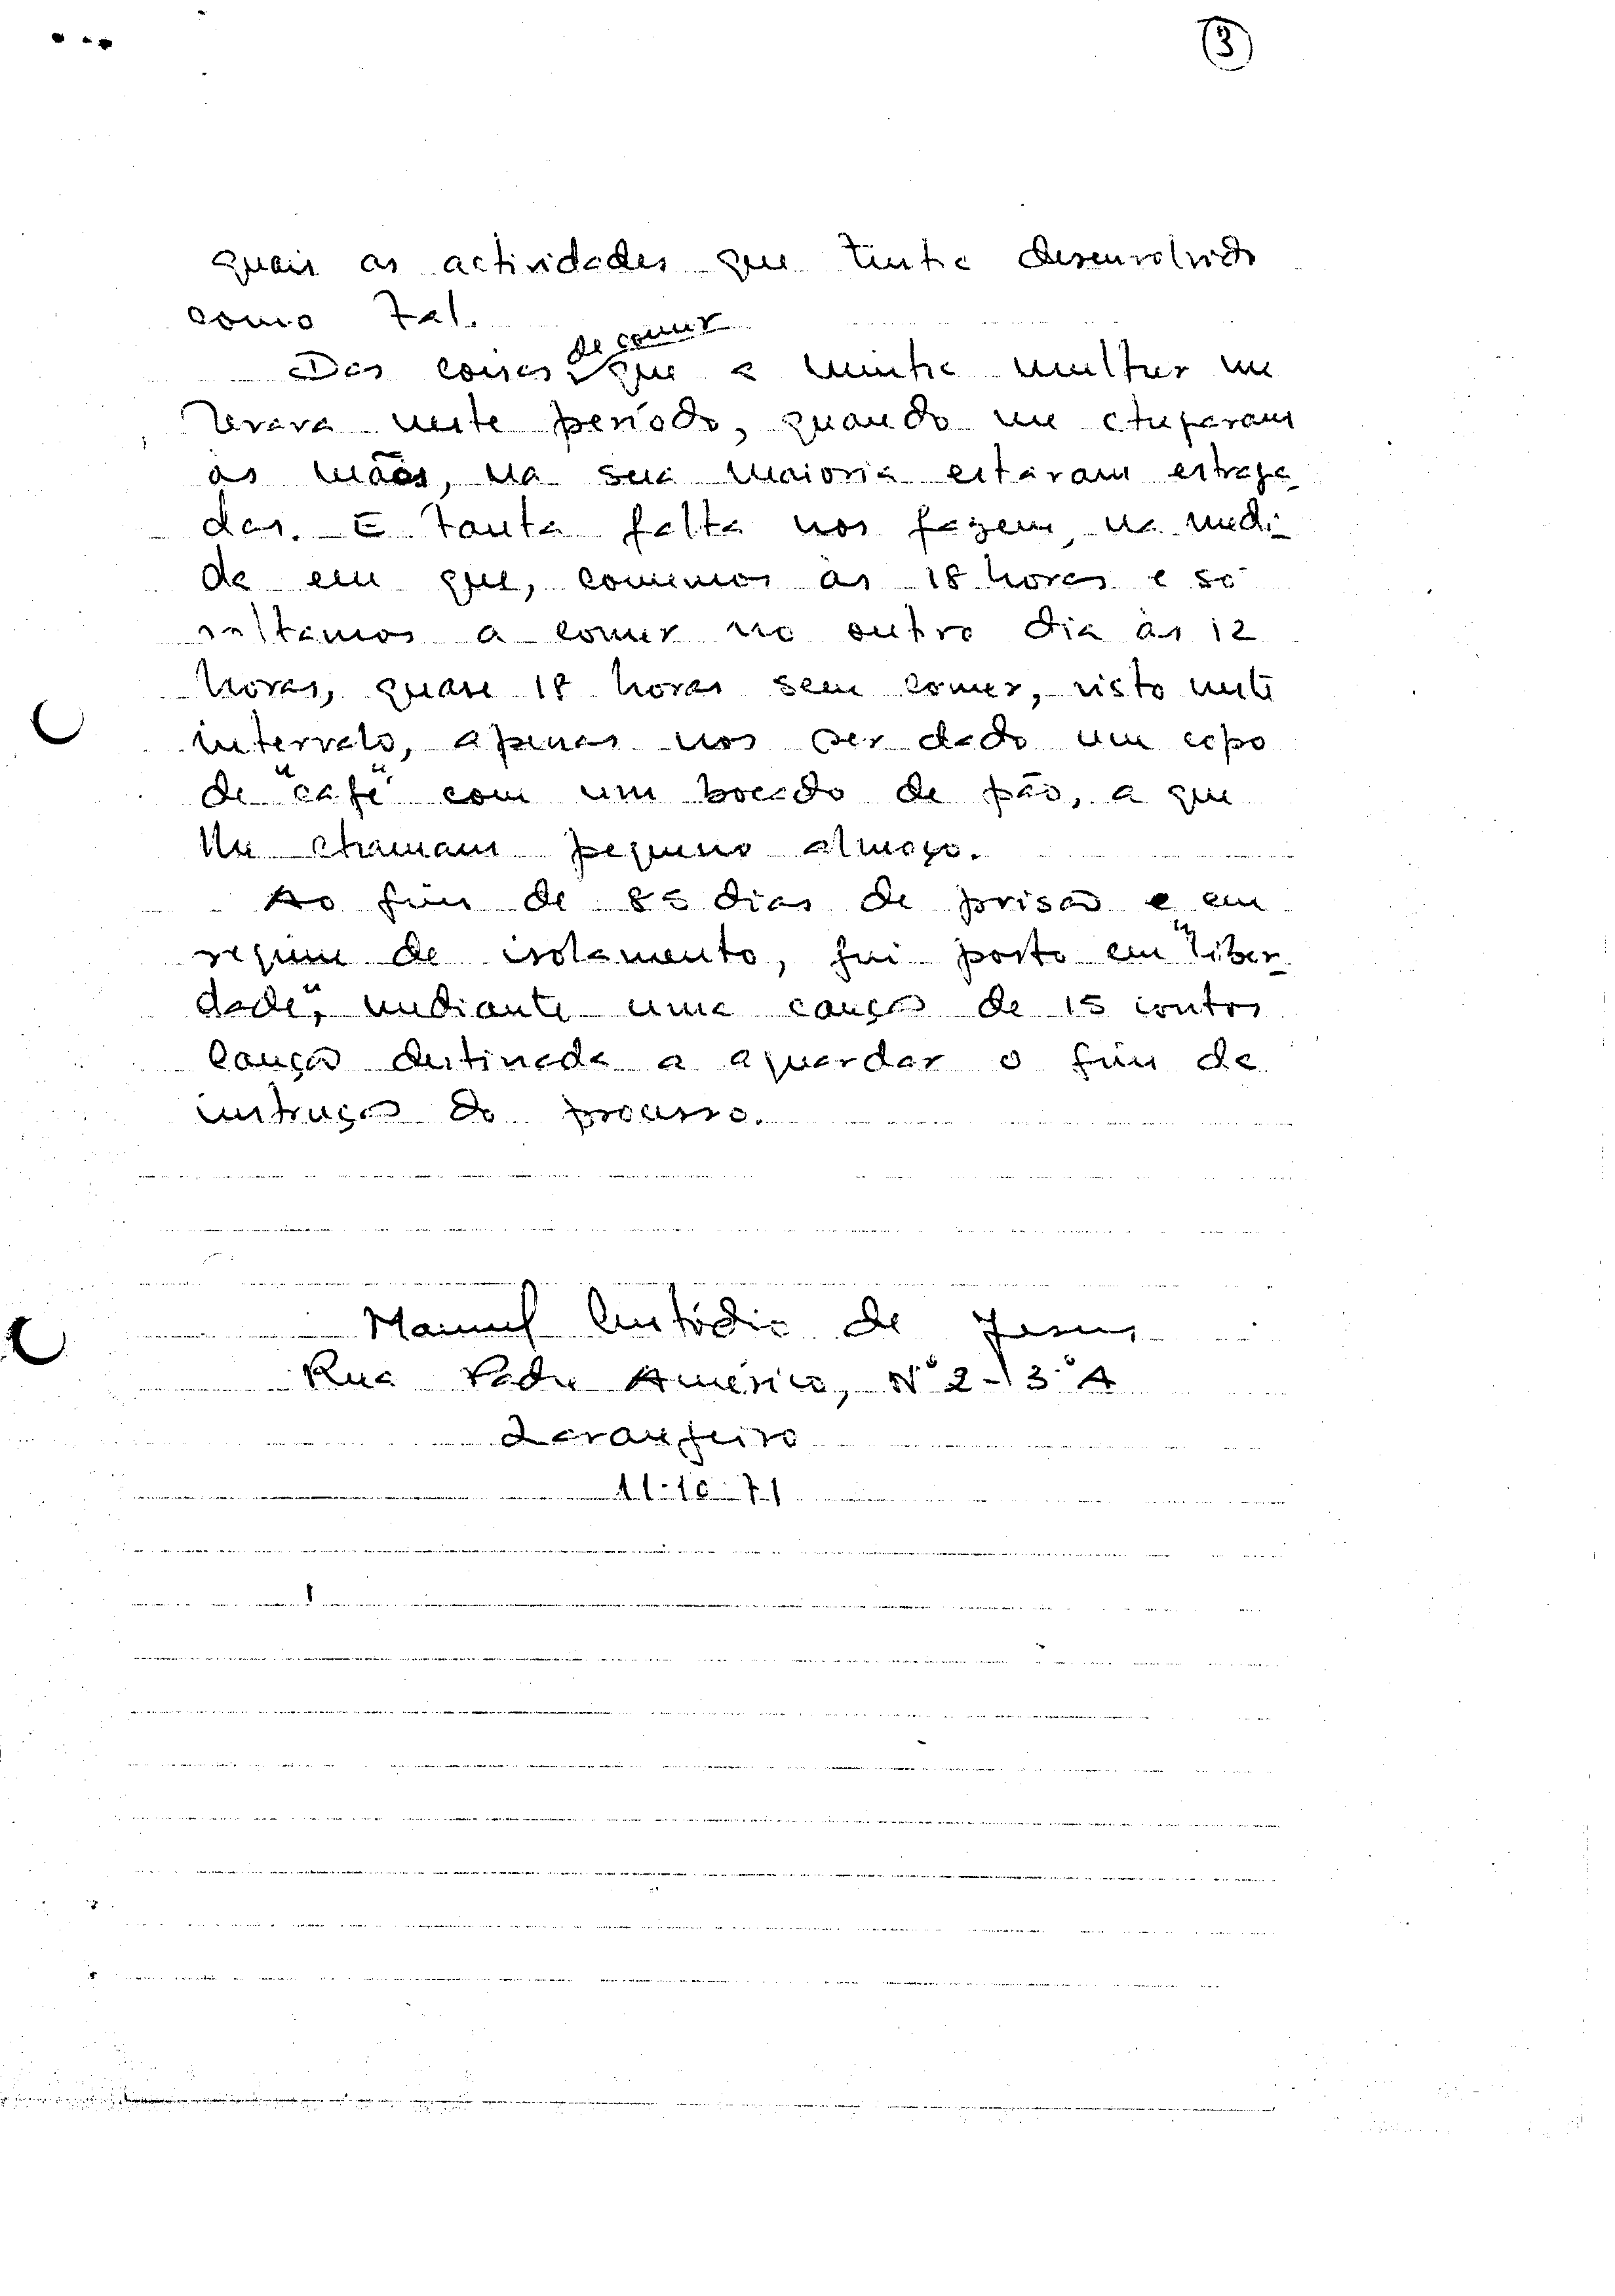 3
quais as actividades que tinha desenvolvido
como tal.
de comer
Das coisas que a minha mulher me
levava neste período, quando me chegaram
às mãos, na sua maioria estavam estraga
das. E tanta falta nos fazem, na medi
da em que, comemos às 18 horas e só
voltamos a comer no outro dia às 12
horas, quase 18 horas sem comer, visto neste
intervalo, apenas nos ser dado um copo
de "café" com um bocado de pão, a que
lhe chamam pequeno almoço.
Ao fim de 85 dias de prisão e em
regime de isolamento, fui posto em "liber
dade", mediante uma caução de 15 contos
caução destinada a aguardar o fim da
instrução do processo.
Manuel Custódio de Jesus
Rua Padre Américo, Nº 2-3º A
Laranjeiro
11-10-71